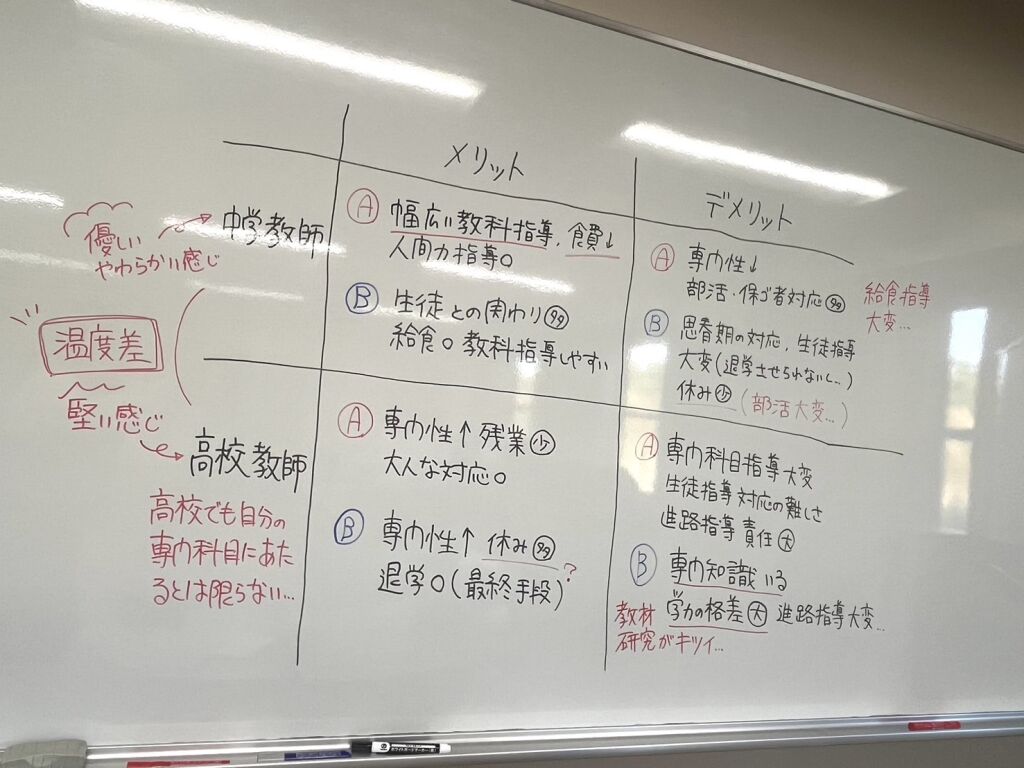 メリット
デメリット
優しい
やわらかい感じ
中学教師
Ⓐ 幅広い教科指導、食費↓
人間力指導○
Ⓑ 生徒との関わり㊛
給食○ 教科指導しやすい
Ⓐ 専門性↓
部活・保ゴ者対応
給食指導
大変…
Ⓑ 思春期の対応、生徒指導
大変(退学させられないし…)
休み 少 (部活大変…)
温度差
堅い感じ
高校教師
高校でも自分の
専門科目にあた
るとは限らない…
Ⓐ 専門性↑ 残業 少
大人な対応○
Ⓑ 専門性↑ 休み 多 ?
退学○(最終手段)
Ⓐ 専門科目指導大変
生徒指導対応の難しさ
進路指導責任 大
Ⓑ 専門知識いる
学力の格差 大 進路指導大変…
教材
研究がキツイ…
ホワイトボードマーカー